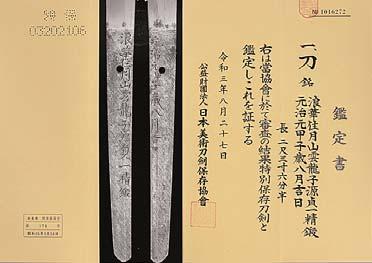 № 1016272
鑑定書
一、刀 銘 浪華住月山雲龍子源貞一精鍛
元治元甲子歳八月吉日
長 二尺三寸六分半
右は當協會に於て審査の結果特別保存刀剣と
鑑定しこれを証する
令和三年八月二十七日
公益財団法人 日本美術刀剣保存協會
03202106
浪華住月山雲龍子源貞一精鍛
元治元甲子歳八月吉日